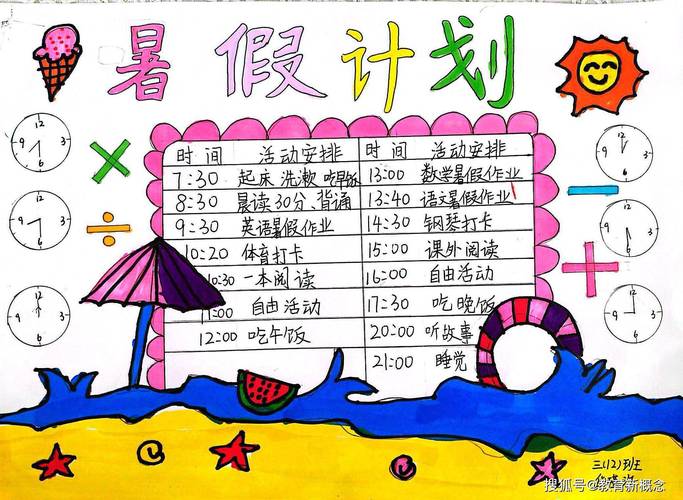 暑假计划
时间 活动安排 时间 活动安排
7:30 起床 洗漱 吃早饭 13:00 数学暑假作业
8:30 晨读30分、背诵 13:40 语文暑假作业
9:30 英语暑假作业 14:30 钢琴打卡
10:20 体育打卡 15:00 课外阅读
10:30 一本阅读 16:00 自由活动
11:00 自由活动 17:30 吃晚饭
12:00 吃午饭 20:00 听故事
21:00 睡觉
12
9 3
12
9 3
12
9 3
12
9 3
12
9 3
12
9 3
三(12)班
搜狐号@教育新概念